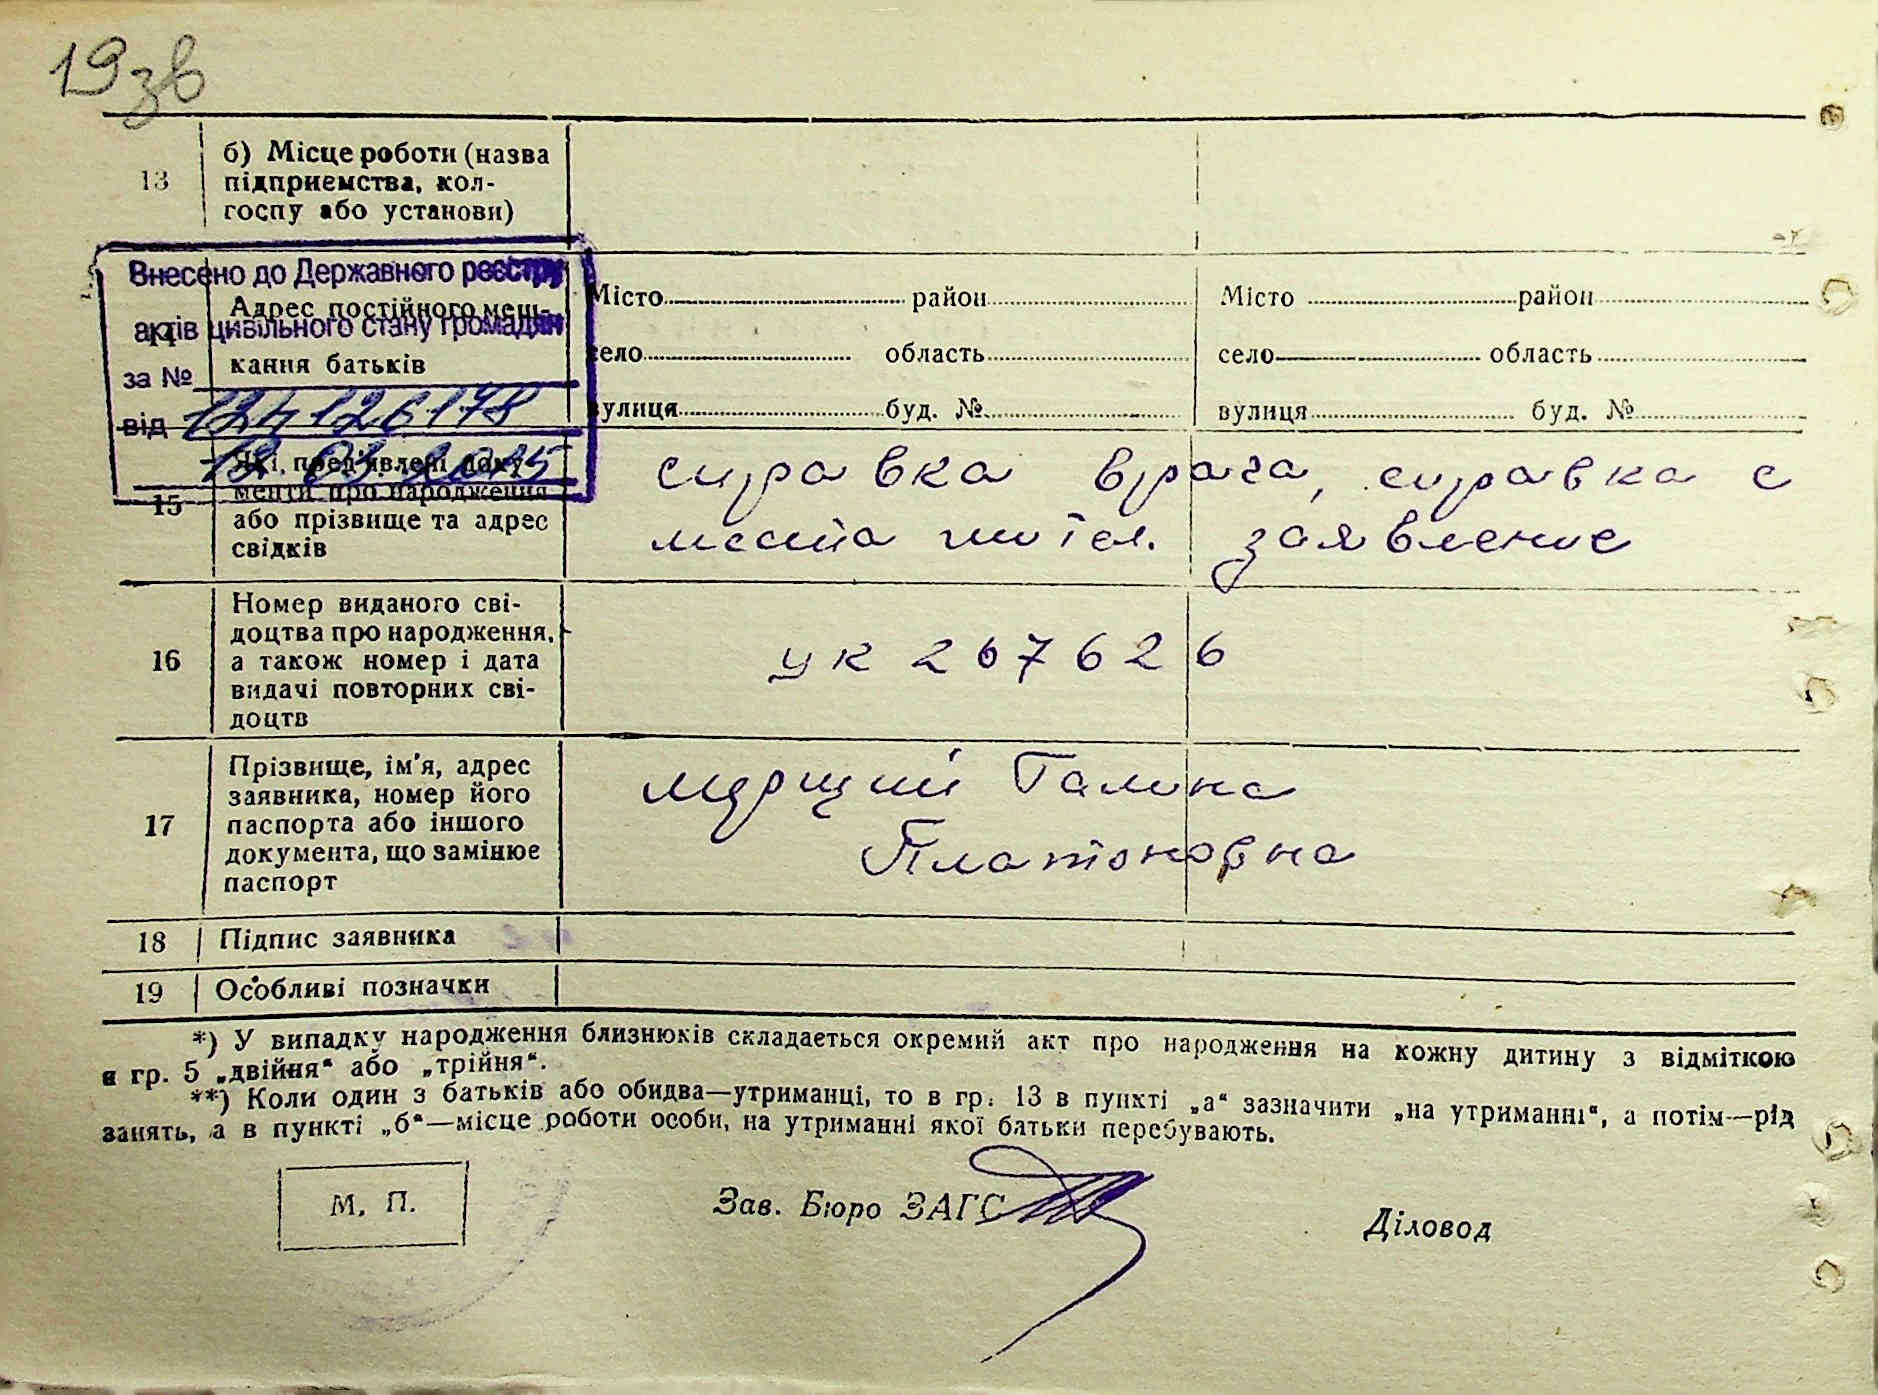 19зв
13
б) Місце роботи (назва
підприємства, кол-
госпу або установи)
Внесено до Державного реєстру
актів цивільного стану громадян
за №
124126178
від
Адрес постійного меш-
кання батьків
Місто район
село область
вулиця буд. №
Місто район
село область
вулиця буд. №
15
Які пред'явлені доку-
менти про народження
або прізвище та адрес
свідків
справка врача, справка с
места жител. заявление
16
Номер виданого сві-
доцтва про народження,
а також номер і дата
видачі повторних сві-
доцтв
УК 267626
17
Прізвище, ім'я, адрес
заявника, номер його
паспорта або іншого
документа, що замінює
паспорт
Галина
Платоновна
18
Підпис заявника
19
Особливі позначки
*) У випадку народження близнюків складається окремий акт про народження на кожну дитину з відміткою
в гр. 5 „двійня“ або „трійня“.
**) Коли один з батьків або обидва—утриманці, то в гр. 13 в пункті „а“ зазначити „на утриманні“, а потім—рід
занять, а в пункті „б“—місце роботи особи, на утриманні якої батьки перебувають.
М. П.
Зав. Бюро ЗАГС
Діловод